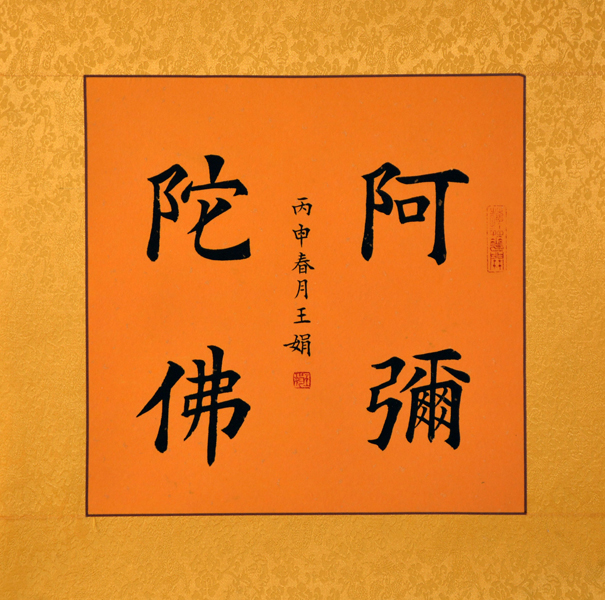 阿彌
陀佛
丙申春月王娟